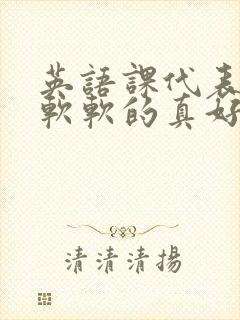 英語課代表
軟軟的真好
清清清揚